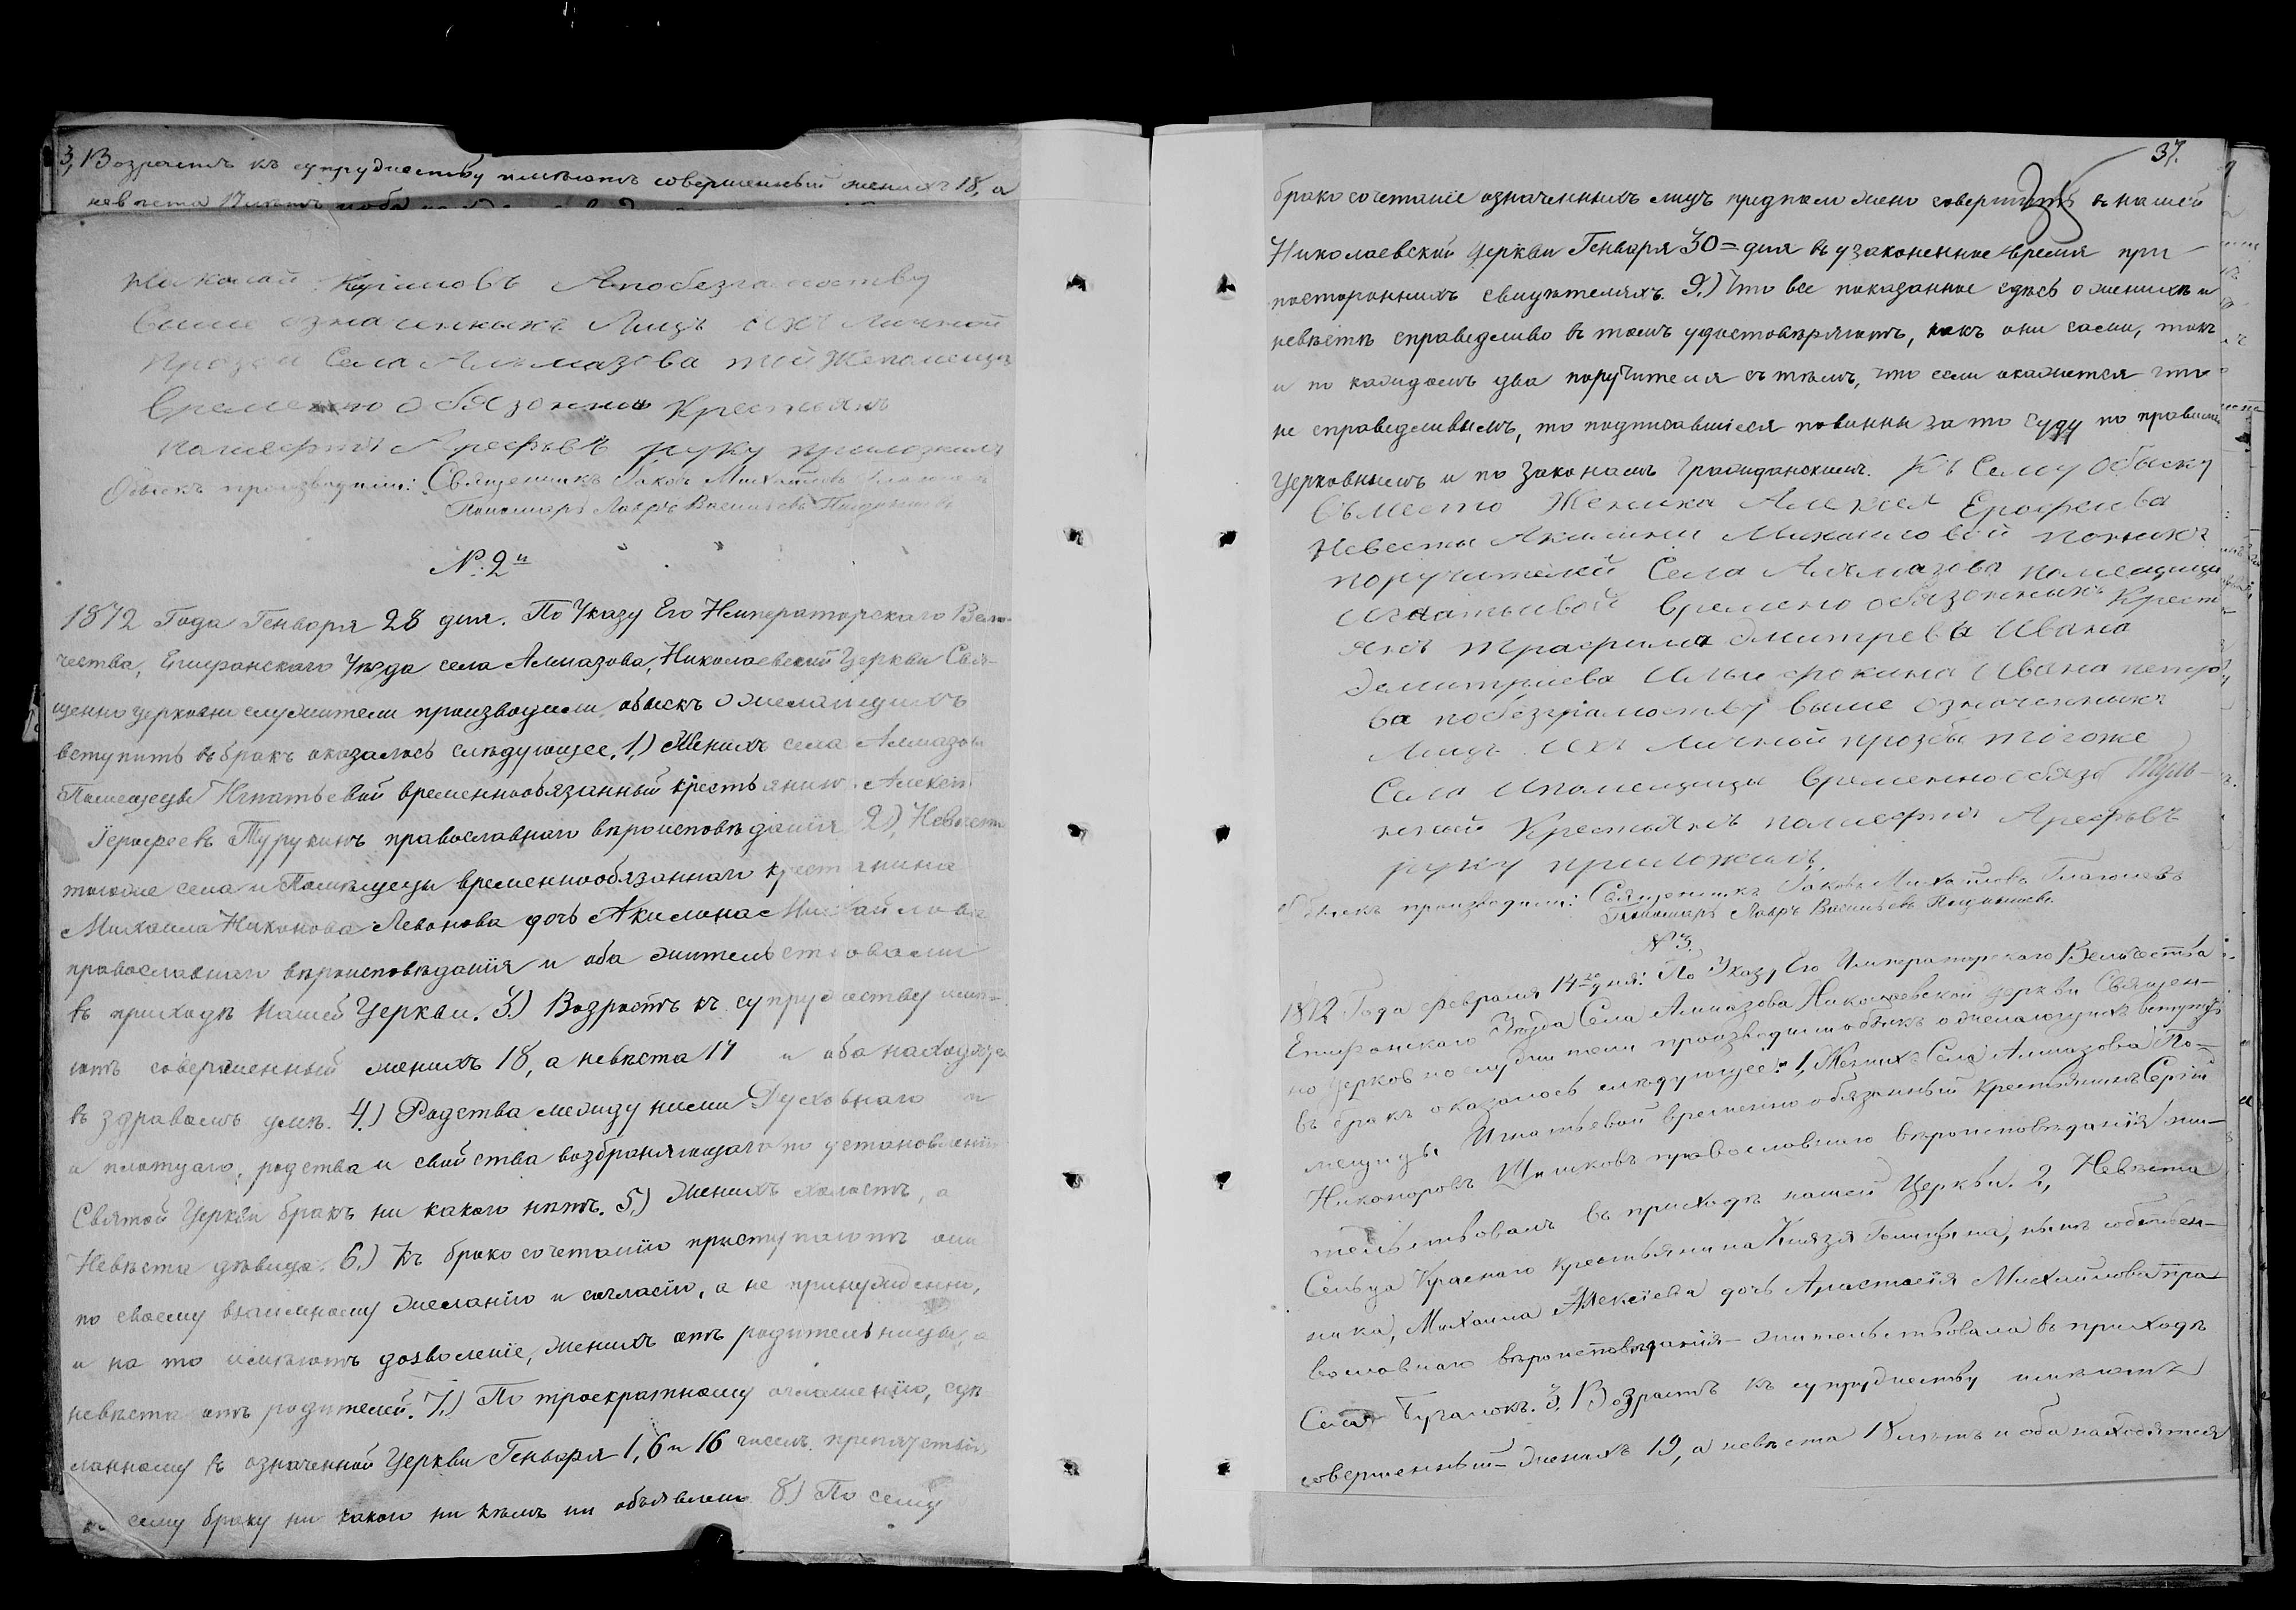 3, Возрастъ къ супружеству имѣютъ совершенный женихъ 18, а
невѣста 17 лѣтъ и оба
Николай А побезграмотству
выше означенныхъ Лицъ ихъ Личной
прозби Села Алъмазова той Же помещицы
Временно обязонной Крестьянъ
Арефьевъ руку приложилъ
Обыскъ производили: Священникъ Іаковъ Михайловъ
Пономарь Лавръ Васильевъ
№: 2й
1872 Года Генваря 28 дня. По Указу Его Императорскаго Вели-
чества, Епифанскаго Уѣзда села Алмазова, Николаевской Церкви Свя-
щенно церковно служители производили обыскъ о желающихъ
вступить въ бракъ оказалось слѣдующее. 1.) Женихъ села Алмазова
Помещецы Игнатьевой временнообязанный крестьянинъ Алексѣй
Іерофеевъ Турукинъ православнаго вѣроисповѣданія 2), Невѣста
тогоже села и Помѣщецы временнообязаннаго крестьянина
Михаила Никонова Левонова дочь Акилина Михайлова
православнаго вѣроисповѣданія и оба жительствовали
въ приходѣ нашей Церкви. 3.) Возрастъ къ супружеству имѣ-
ютъ совершенный женихъ 18, а невѣста 17 и оба находятся
въ здравомъ умѣ. 4.) Родства между ними Духовнаго и
и плотскаго, родства и свойства возбраняющаго по установленію
Святой Церкви бракъ ни какого нѣтъ. 5.) Женихъ холостъ, а
Невѣста дѣвица. 6.) Къ брако сочетанію приступаютъ они
по своему взаимному желанію и согласію, а не принужденно,
и на то имѣютъ дозволеніе, женихъ отъ родительницы, а
невѣста отъ родителей. 7.) По троекратному оглашенію, сдѣ-
ланному въ означенной Церкви Генваря 1, 6 и 16 числъ препятствія
къ сему браку ни какого ни кѣмъ ни объявлено 8.) По сему
37.
брако сочетаніе означенныхъ лицъ предположено совершить въ нашей
Николаевской Церкви Генваря 30= дня въ узаконенное время при
постороннихъ свидѣтеляхъ. 9.) Что все показанное здѣсь о женихѣ и
невѣстѣ справедливо въ томъ удостовѣряютъ, какъ они сами, такъ
и по каждомъ два поручителя съ тѣмъ, что если окажется что
не справедливымъ, то подписавшіеся повинны за то суду по правиламъ
церковнымъ и по законамъ гражданскимъ. Къ Сему обыску
Въместо Жениха Алексея Ерофеива
Невесты Акилини Михаиловой поних
поручителей Села Алъмазова помещицы
игнатьивой временно обязонных Крест
янъ Трофима Дмитрева Ивана
Демитриева Ильи фокина Ивана петро
ва побезграмоству выше означенных
Лицъ ихъ Личной прозбы тогоже
Села ипомещицы временнообязо
Крестьянъ Арефьевъ
руку приложилъ
Обыскъ производили: Священникъ Іаковъ Михайловъ Глаголевъ
Пономарь Лавръ Васильевъ
№ 3.
1872 Года февраля 14го дня: По Указу Его Императорскаго Величества
Епифанскаго Уѣзда Села Алмазова Николаевской церкви Священ-
но Церковно служители производили обыскъ о желающихъ вступить
въ бракъ оказалось слѣдующее: 1, Женихъ Села Алмазова По-
мещицы Игнатьевой временно обязанный крестьянинъ Сергій
Никоноровъ Шишковъ православнаго вѣроисповѣданія жи-
тельствовалъ въ приходѣ нашей Церкви. 2, Невѣста
Сельца Краснаго крестьянина Князя Голицына, нынѣ собствен-
ника, Михаила Алексіева дочь Анастасія Михайлова пра-
вославнаго вѣроисповѣданія жительствовала въ приходѣ
Села Бучалокъ. 3, Возрастъ къ супружеству имѣютъ
совершенный женихъ 19, а невѣста 18 лѣтъ и оба находятся